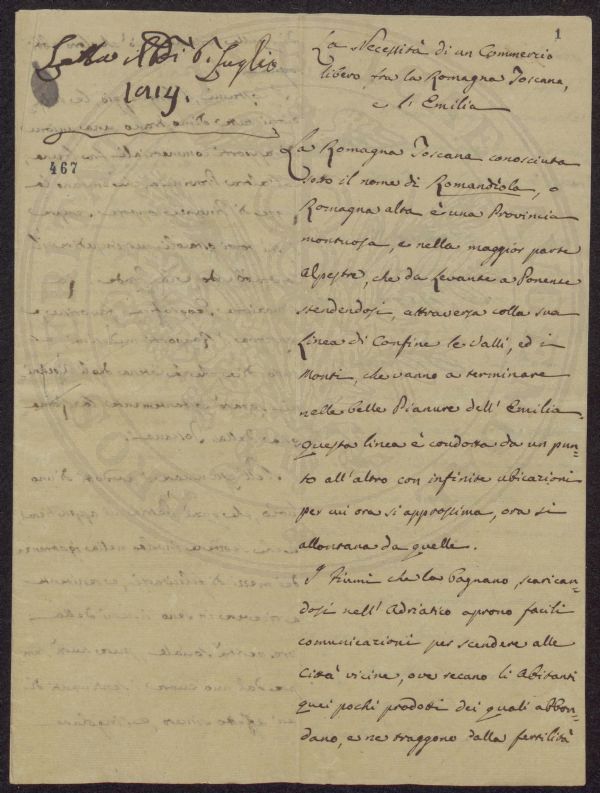 1
Letta il Dì 6. Luglio
1819.
467
La Necessità di un Commercio
libero fra la Romagna Toscana,
e l'Emilia
La Romagna Toscana conosciuta
sotto il nome di Romandiola, o
Romagna alta è una Provincia
montuosa, e nella maggior parte
alpestre, che da Levante a Ponente
stendendosi, attraversa colla sua
Linea di Confine le Valli, ed i
Monti, che vanno a terminare
nelle belle Pianure dell'Emilia.
questa linea è condotta da un pun=
to all'altro con infinite ubicazioni
per cui ora si approssima, ora si
allontana da quelle.
I Fiumi che la bagnano, scarican=
dosi nell'Adriatico aprono facili
comunicazioni per scendere alle
Città vicine, ove recano li Abitanti
quei pochi prodotti dei quali abbon=
dano, e ne traggono dalla fertilità